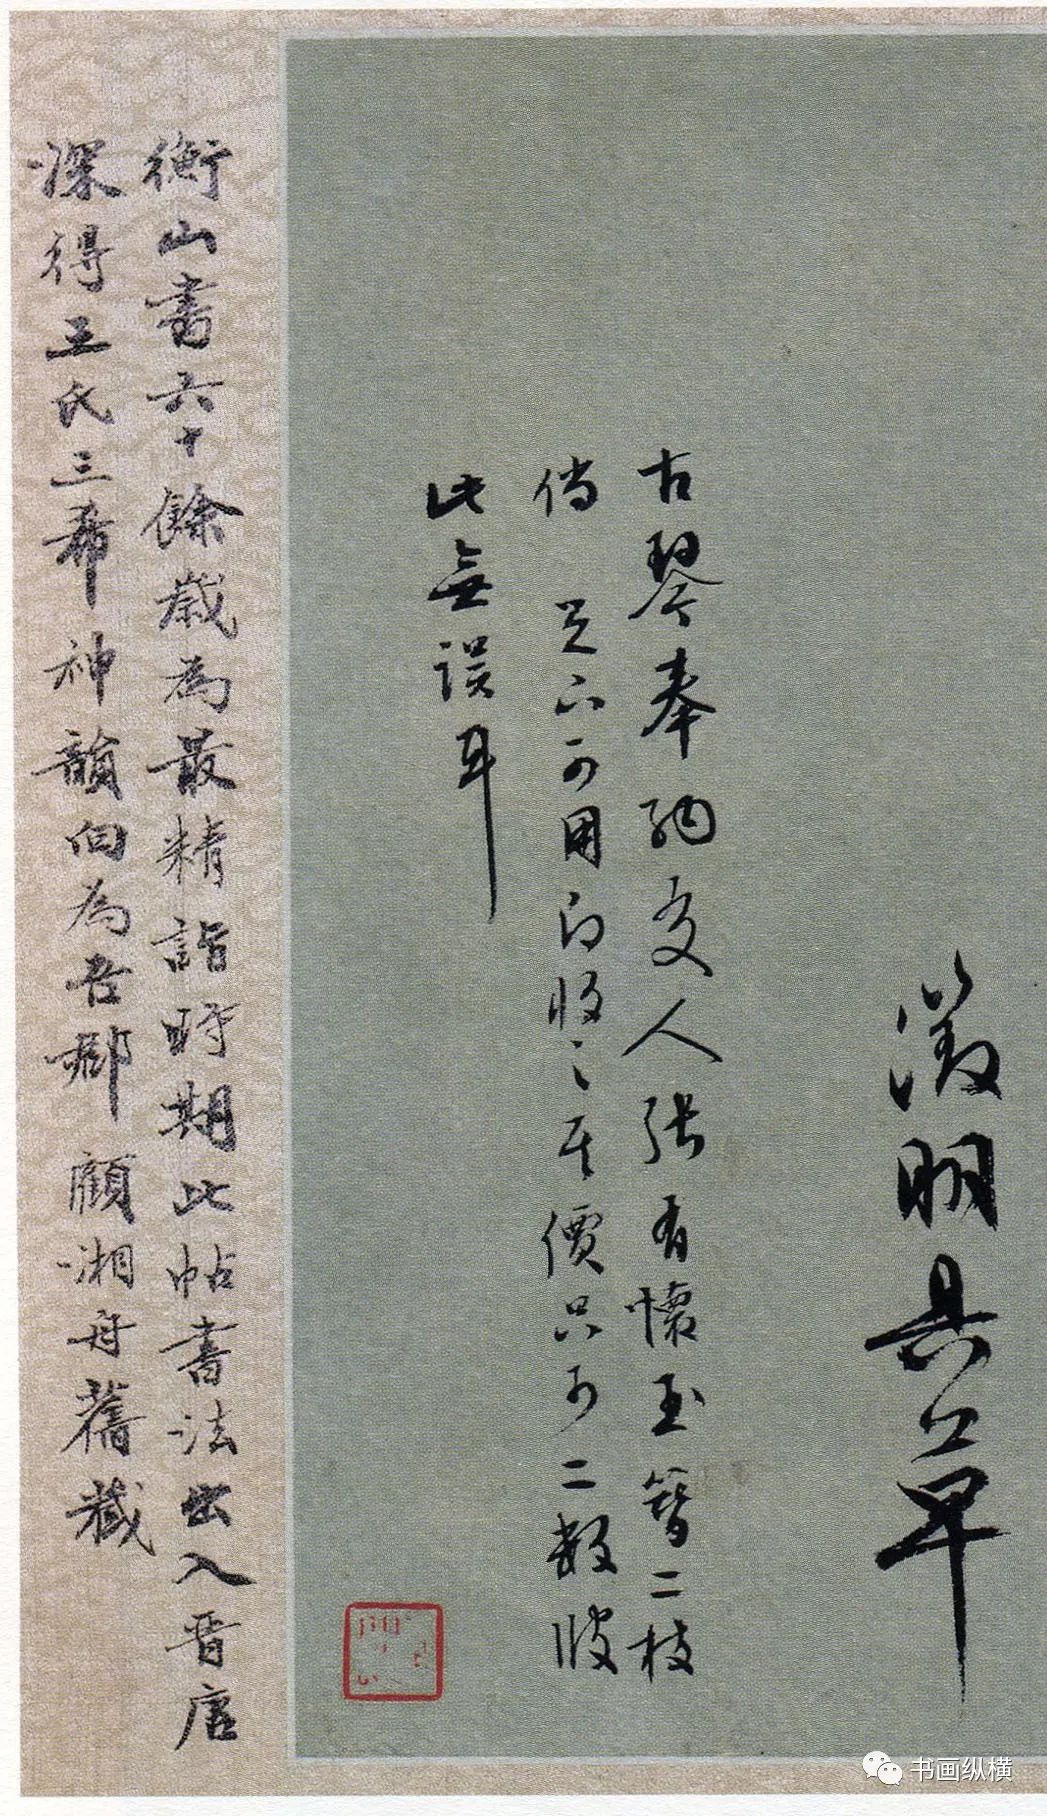 徵明具草
古琴奉納文人張有懷玉簪二枝
倘 足下可用即收之其價只可二數
此無誤耳
衡山書六十餘歲為最精詣時期此帖書法出入晉唐
深得王氏三希神韻向為吾鄉顧湘舟舊藏
书画纵横